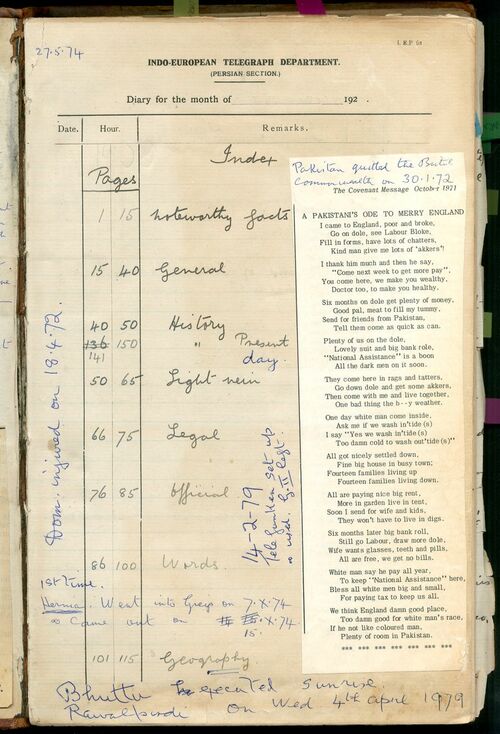 27.5.74
I.E.P 98
INDO-EUROPEAN TELEGRAPH DEPARTMENT.
(PERSIAN SECTION.)
Diary for the month of 192 .
Date. Hour. Remarks.
Index
Pages
1 15 noteworthy facts
15 40 General
40 50 History
136 150 " Present
141 day.
50 65 Light vein
66 75 Legal
76 85 Official
86 100 Words.
1st time.
Hernia. Went into Greys on 7.X.74
& Came out on 15.X.74
101 115 Geography
Bhutto executed sunrise
Rawalpindi on Wed 4th april 1979
Dom. injured on 18.4.72.
4-2-79
Telefunken set up
& used. G. II left.
Pakistan quitted the British
Commonwealth on 30.1.72
The Covenant Message October 1971
A PAKISTANI'S ODE TO MERRY ENGLAND
I came to England, poor and broke,
Go on dole, see Labour Bloke,
Fill in forms, have lots of chatters,
Kind man give me lots of 'akkers'!
I thank him much and then he say,
"Come next week to get more pay",
You come here, we make you wealthy.
Doctor too, to make you healthy.
Six months on dole get plenty of money,
Good pal, meat to fill my tummy,
Send for friends from Pakistan,
Tell them come as quick as can.
Plenty of us on the dole,
Lovely suit and big bank role,
"National Assistance" is a boon
All the dark men on it soon.
They come here in rags and tatters,
Go down dole and get some akkers,
Then come with me and live together,
One bad thing the b--y weather.
One day white man come inside,
Ask me if we wash in'tide (s)
I say "Yes we wash in'tide (s)
Too damn cold to wash out'tide (s)"
All got nicely settled down,
Fine big house in busy town;
Fourteen families living up
Fourteen families living down.
All are paying nice big rent,
More in garden live in tent,
Soon I send for wife and kids,
They won't have to live in digs.
Six months later big bank roll,
Still go Labour, draw more dole,
Wife wants glasses, teeth and pills,
All are free, we get no bills.
White man say he pay all year,
To keep "National Assistance" here,
Bless all white men big and small,
For paying tax to keep us all.
We think England damn good place,
Too damn good for white man's race,
If he not like coloured man,
Plenty of room in Pakistan.
*** *** *** *** *** *** *** *** ***